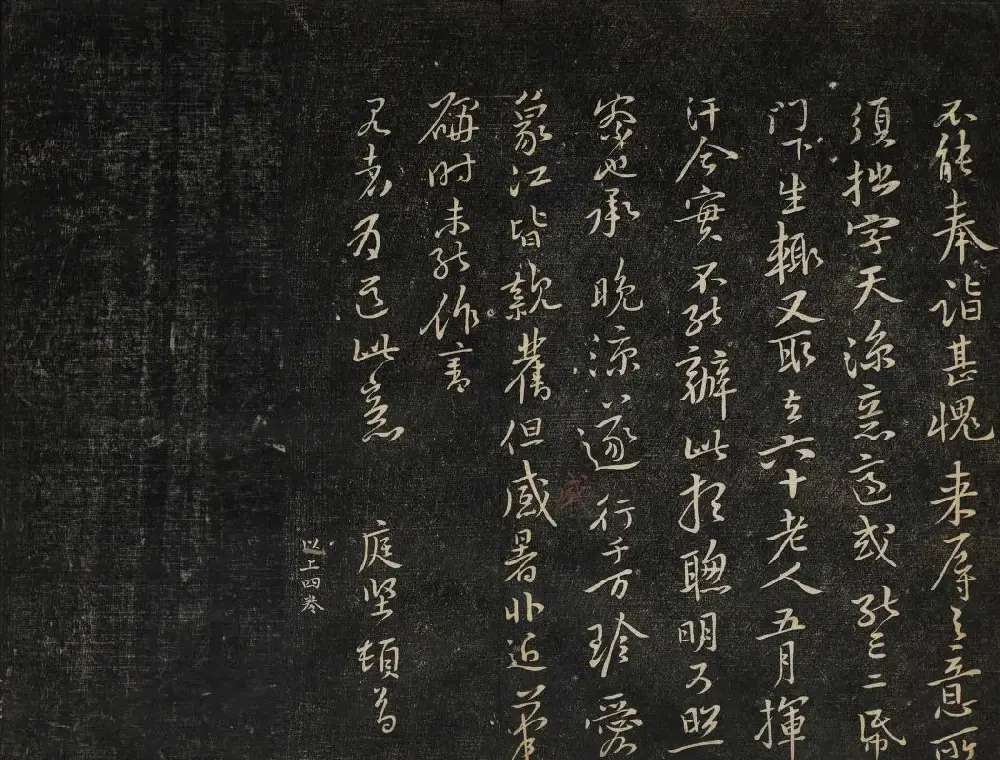 不能奉詣甚愧来辱之意所
須拙字天涼意適或能三二帋
门下生輙又取去六十老人五月揮
汗今實不能辦此想聰明可照
察也承晚涼遂行千万珍愛
象江皆親舊但盛暑非近筆
硯时未能作書
見者为道此意 庭坚頓首
以上四卷